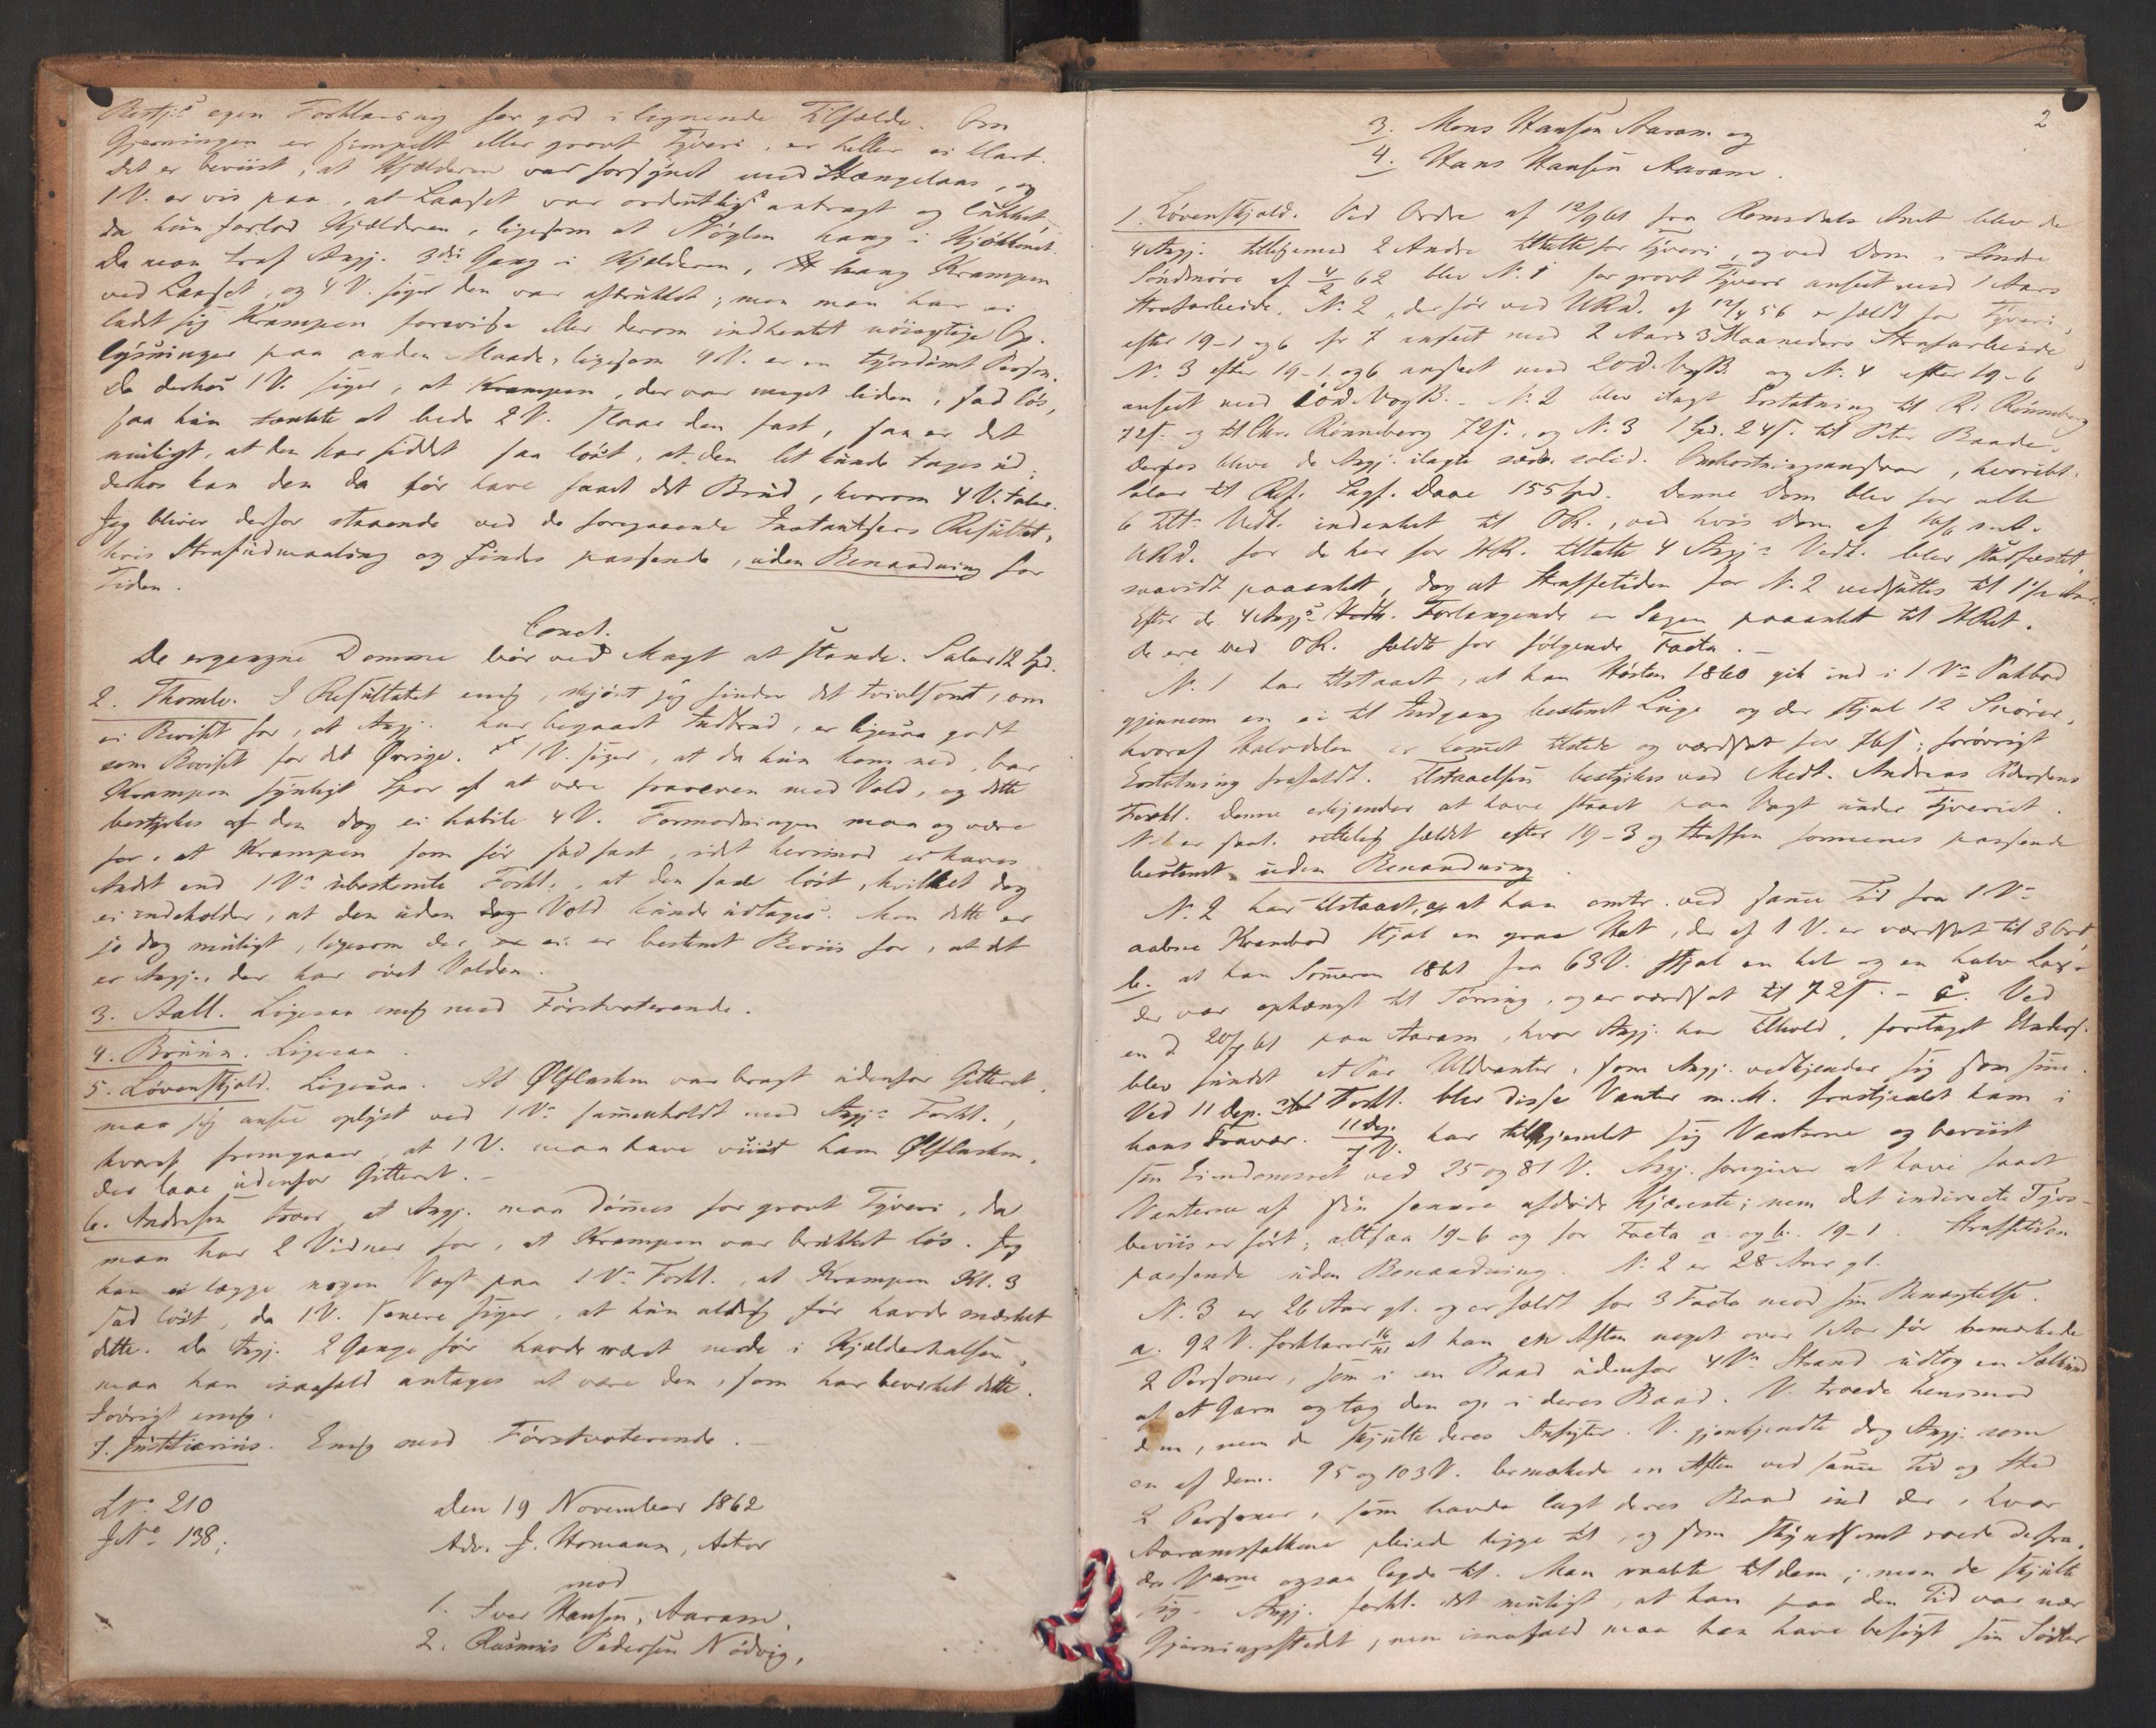 Restj.s egen Forklaring for god i lignende Tilfælde. Om
Gjerningen er simpelt eller grovt Tyveri, er heller ei klart.
Det er beviist, at Kjælderen var forsynet med Hængelaas, og
1 V. er vis paa, at Laaset var ordentligt anbragt og lukket
da hun forlod Kjælderen, ligesom at Nöglen hang i Kjökkenet.
Da man traf Angj. 3die Gang i Kjælderen, hang Krampen
ved Laaset, og 4 V. siger den var afbrukket; men man har ei
ladt sig Krampen forevise eller derom indhentet nöiagtige Op-
lysninger paa anden Maade, ligesom 4 V. er en tyvdömt Person.
Da derhos 1 V. siger, at Krampen, der var meget liden, sad lös,
saa hun tænkte at bede 2 V. slaae den fast, saa er det
muligt, at den har siddet saa löst, at den let kunde tages ud;
derhos kan den da för have faaet det Brud, hvorom 4 V. taler.
Jeg bliver derfor staaende ved de foregaaende Instantsers Resultat,
hvis Strafudmaaling og findes passende, uden Benaadning for
Tiden.
Concl.
De ergangne Domme bör ved Magt at stande. Salær 12 Spd.
2. Thomle. I Resultatet enig, skjönt jeg finder det tvivlsomt, om
ei Beviset for, at Angj. har begaaet Indbrud, er ligesaa godt
som Beviset for det Övrige. 1 V. siger, at da hun kom ned, bar
Krampen synligt Spor af at være frareven med Vold, og dette
bestyrkes af den dog ei habile 4 V. Formodningen maa og være
for, at Krampen som för sad fast, idet herimod ei haves
Andet end 1 V.s ubestemte Forkl., at den sad löst, hvilket dog
ei indeholder, at den uden Vold kunde udtages. Men dette er
jo dog muligt, ligesom der ei er bestemt Beviis for, at det
er Angj., der har övet Volden.
3. Aall. Ligesaa enig med Förstvoterende.
4. Bruun. Ligesaa.
5. Løvenskjold. Ligesaa. At Ølflasken var bragt udenfor Gitteret
maa jeg ansee oplyst ved 1 V.s sammenholdt med Angj.s Forkl.,
hvoraf fremgaaer, at 1 V. maa have viist ham Ølflasken,
der laae udenfor Gitteret.
6. Andresen troer at Angj. maa dömmes for grovt Tyveri, da
man har 2 Vidner for, at Krampen var brukket lös. Jeg
kan ei lægge nogen Vægt paa 1 V.s Forkl., at Krampen Kl. 3
sad löst, da 1 V. senere siger, at hun aldrig för havde mærket
dette. Da Angj. 2 Gange för havde været nede i Kjælderhalsen,
maa han isaafald antages at være den, som har bevirket dette.
Iövrigt enig.
7. Justitiarius. Enig med Förstvoterende.
LN.o 210
JN.o 138;
Den 19 November 1862
Adv. J. Homann, Actor
mod
1. Iver Hansen, Aaram,
2. Rasmus Pedersen Nödvig,
2
3. Mons Hansen Aaram og
4. Hans Hansen Aaram.
1. Løvenskjold. Ved Ordre af 12/9 61 fra Romsdals Amt blev de
4 Angj. tilligemed 2 Andre tiltalte for Tyveri, og ved Dom i Söndre
Söndmöre af 4/2 62 blev N. 1 for grovt Tyveri anseet med 1 Aars
Strafarbeide. N. 2, der för ved URD. af 12/4 56 er fældt for Tyveri,
efter 19-1 og 6 fr 7 anseet med 2 Aars 3 Maaneders Strafarbeide
N. 3 efter 19-1 og 6 anseet med 20 D. VogB. og N. 4 efter 19-6
anseet med 10 D VogB. – N. 2 blev ilagt Erstatning til R. Rönneberg
72ſ. og til Chr. Rönneberg 72ſ., og N. 3 1 Spd. 24ſ. til Peter Baade.
Derhos bleve de Angj. ilagte sædv. solid. Omkostningsansvar, hvoribl.
Salær til Ref. Sagf. Daae 155 Spd. Denne Dom blev for alle
6 Tilt. Vedk. indanket til OR., ved hvis Dom af
URD. for de her for HR. tiltalte 4 Angj.s Vedk. blev stadfæstet,
saavidt paaanket, dog at Straffetiden for N. 2 nedsattes til 1 1/2 Aar.
Efter de 4 Angj.s Forlangende er Sagen paaanket til HRet.
De ere ved OR. fældt for fölgende Facta. –
N. 1 har tilstaaet, at han Hösten 1860 gik ind i 1 V.s Pakbod
gjennem en ei til Indgang bestemt Luge og der stjal 12 Snörer,
hvoraf Halvdelen er kommet tilstede og værdsat for 76ſ; forövrigt
Erstatning frafaldt. Tilstaaelsen bestyrkes ved Medt. Andreas
Forkl. Denne erkjender at have staaet paa Vagt under Tyveriet.
N. 1 er saal. rettelig fældet efter 19-3 og Straffen formenes passende
bestemt uden Benaadning.
N. 2 har tilstaaet, a, at han omtr. ved samme Tid fra 1 V.s
aabne Krambod stjal en graa Hat, der af 1 V. er værdsat til 3 Ort,
b. at han Sommeren 1861 fra 63 V. stjal en hel og en halv Lax,
der var ophængt til Törring, og er værdsat til 72ſ. – c. Ved
en d 20/7 61 paa Aaram, hvor Angj. har Tilhold, foretaget Unders.
blev fundet et Par Uldvanter, som Angj. vedkjender sig som sine.
Ved 11 Dep. Forkl. blev disse Vanter m. M. frastjaalet ham i
hans Fravær. 11 Dep. 7 V. har tilkjendt sig Vanterne og beviist
sin Eiendomsret ved 25 og 81 V. Angj. foregiver at have faaet
Vanterne af sin senere afdöde Kjæreste; men det indirecte Tyvs-
beviis er fört; altsaa 19-6 og for Facta a. og b. 19-1. Straffetiden
passende uden Benaadning. N. 2 er 28 Aar gl.
N. 3 er 26 Aar gl. og er fældt for 3 Facta mod sin Benægtelse.
a. 92 V. forklarer at han en Aften noget over 1 Aar för bemærkede
2 Personer, som i en Baad udenfor 4 V.s Strand udtog en
af et Garn og tog den op i deres Baad. V. roede henimod
dem, men de skjulte deres Ansigter. V. gjenkjendte dog Angj. som
en af dem. 95 og 103 V. bemærkede en Aften ved samme Tid og Sted
2 Personer, som havde lagt deres Baad ind der, hvor
Aaramsfolkene pleiede ligge til, og som skyndsomt roede derfra,
da Verne ogsaa lagde til. Man raabte til dem; men de skjulte
sig. Angj. forkl. det muligt, at han paa den Tid var nær
Gjerningsstedet, men isaafald maa han have besögt sin Söster